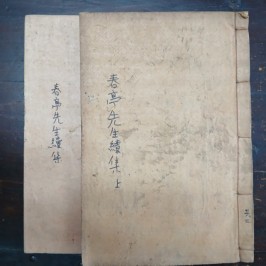 春亭先生續集上
春亭先生續集